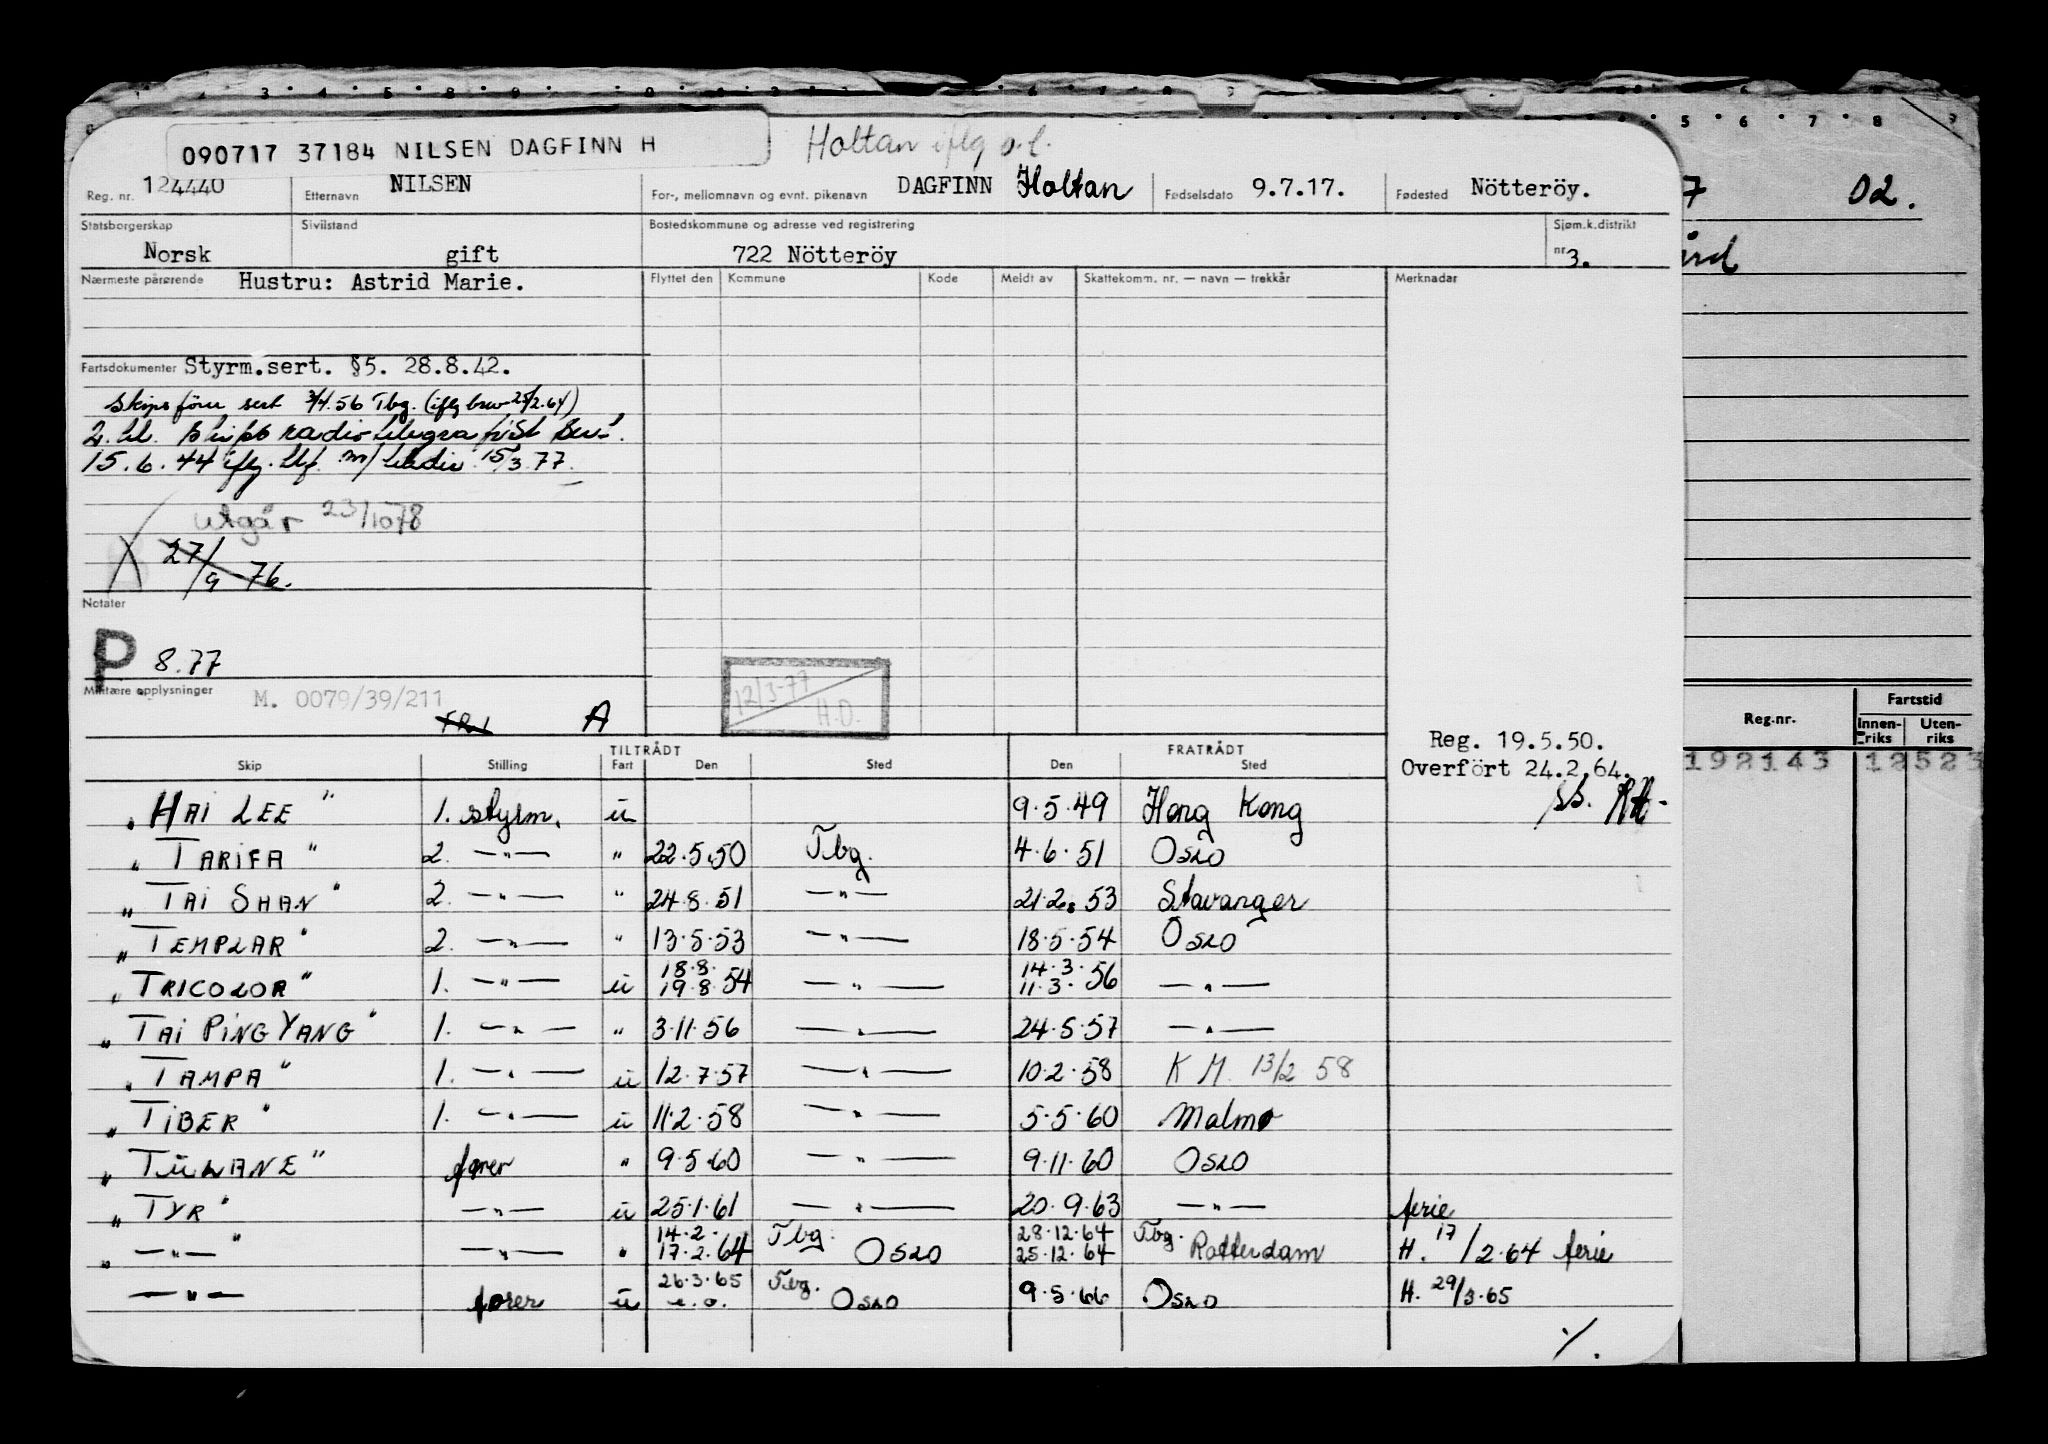 090717 37184 NILSEN DAGFINN H
Holtan iflg
Reg. nr. 124440 Etternavn NILSEN For-, mellomnavn og evnt. pikenavn DAGFINN Holtan Fødselsdato 9.7.17. Fødested Nötteröy.
Statsborgerskap Norsk Sivilstand gift Bostedskommune og adresse ved registrering 722 Nötteröy Sjøm.k.distrikt nr 3.
Nærmeste pårørende Hustru: Astrid Marie. Flyttet den Kommune Kode Meldt av Skattekomm. nr. — navn — trekkår Merknadar
Fartsdokumenter Styrm.sert. §5. 28.8.42.
Skipsförer sert 3/4.56 Tbg. (iflg brev 25/2.64)
2. kl. skips radiotelegrafist
15.6.44 iflg. tlf. m/ 15/3.77.
utgår 23/10 78
27/9 76.
Notater
P 8.77
Militære opplysninger M. 0079/39/211
A
12/3-77
H.D.
Reg. 19.5.50.
Overfört 24.2.64.
TILTRÅDT FRATRÅDT
Skip Stilling Fart Den Sted Den Sted
"HAI LEE" 1. styrm. u 9.5.49 Hong Kong
"TARIFA" 2. —"— " 22.5.50 Tbg. 4.6.51 OSLO
"TAI SHAN" 2. —"— " 24.8.51 —"— 21.2.53 Stavanger
"TEMPLAR" 2. —"— " 13.5.53 —"— 18.5.54 OSLO
"TRICOLOR" 1. —"— u 18.8. 19.8.54 —"— 14.3. 11.3.56 —"—
"TAI PING YANG" 1. —"— " 3.11.56 —"— 24.5.57 —"—
"TAMPA" 1. —"— u 12.7.57 —"— 10.2.58 K M. 13/2 58
"TIBER" 1. —"— u 11.2.58 —"— 5.5.60 Malmø
"TULANE" fører " 9.5.60 —"— 9.11.60 OSLO
"TYR" —"— u 25.1.61 —"— 20.9.63 —"— ferie
—"—" —"— " 14.2. 17.2.64 Tbg. OSLO 28.12.64 25.12.64 Tbg. Rotterdam H. 17/2.64 ferie
—"— fører u 26.3.65 Tbg. OSLO 9.5.66 OSLO H. 29/3.65
%.
7 02.
Reg.nr. Fartstid
Innen-riks Uten-riks
192143 12523